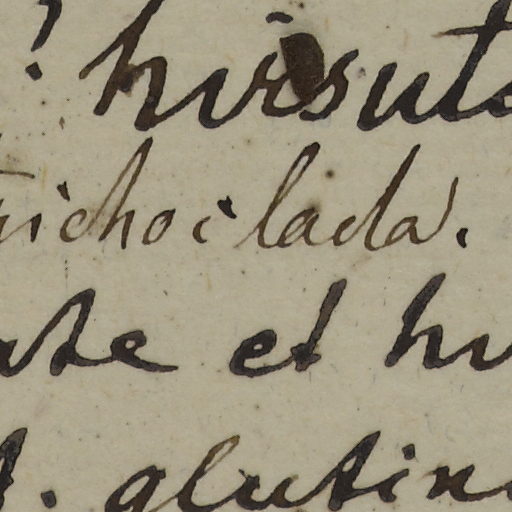 ! hirsuta
trichoclada.
ate et hi
. glutin